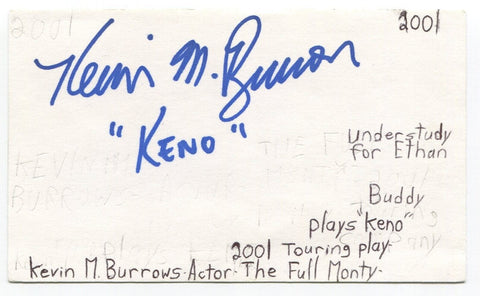 2001
2001
Kevin M. Burrows
"KENO"
understudy
for Ethan
Buddy
plays "Keno"
2001 Touring play-
Kevin M. Burrows-Actor-The Full Monty-